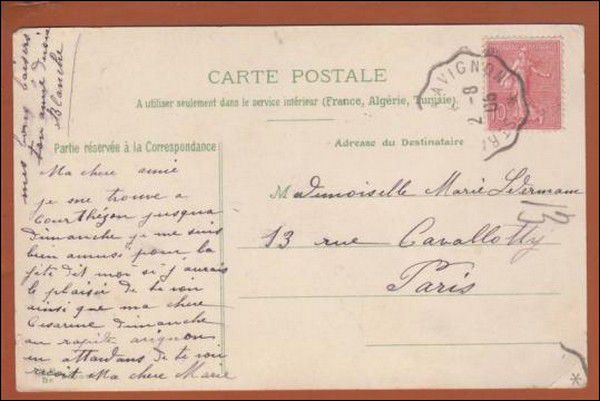 CARTE POSTALE
A utiliser seulement dans le service intérieur (France, Algérie, Tunisie)
Partie réservée à la Correspondance
Adresse du Destinataire
Ma chere amie
je me trouve a
Courthézon jusqua
dimanche je me suis
bien amusé pour la
fête dit moi si j'aurais
le plaisir de te voir
ainsi que ma chere
Cesarine dimanche
au rapide avignon
en attandans de te voir
Ma chere Marie
mes bons baisers
ton amie
Blanche
Mademoiselle Marie
13 rue Cavallotty
Paris
13
AVIGNON
8
2
06
10